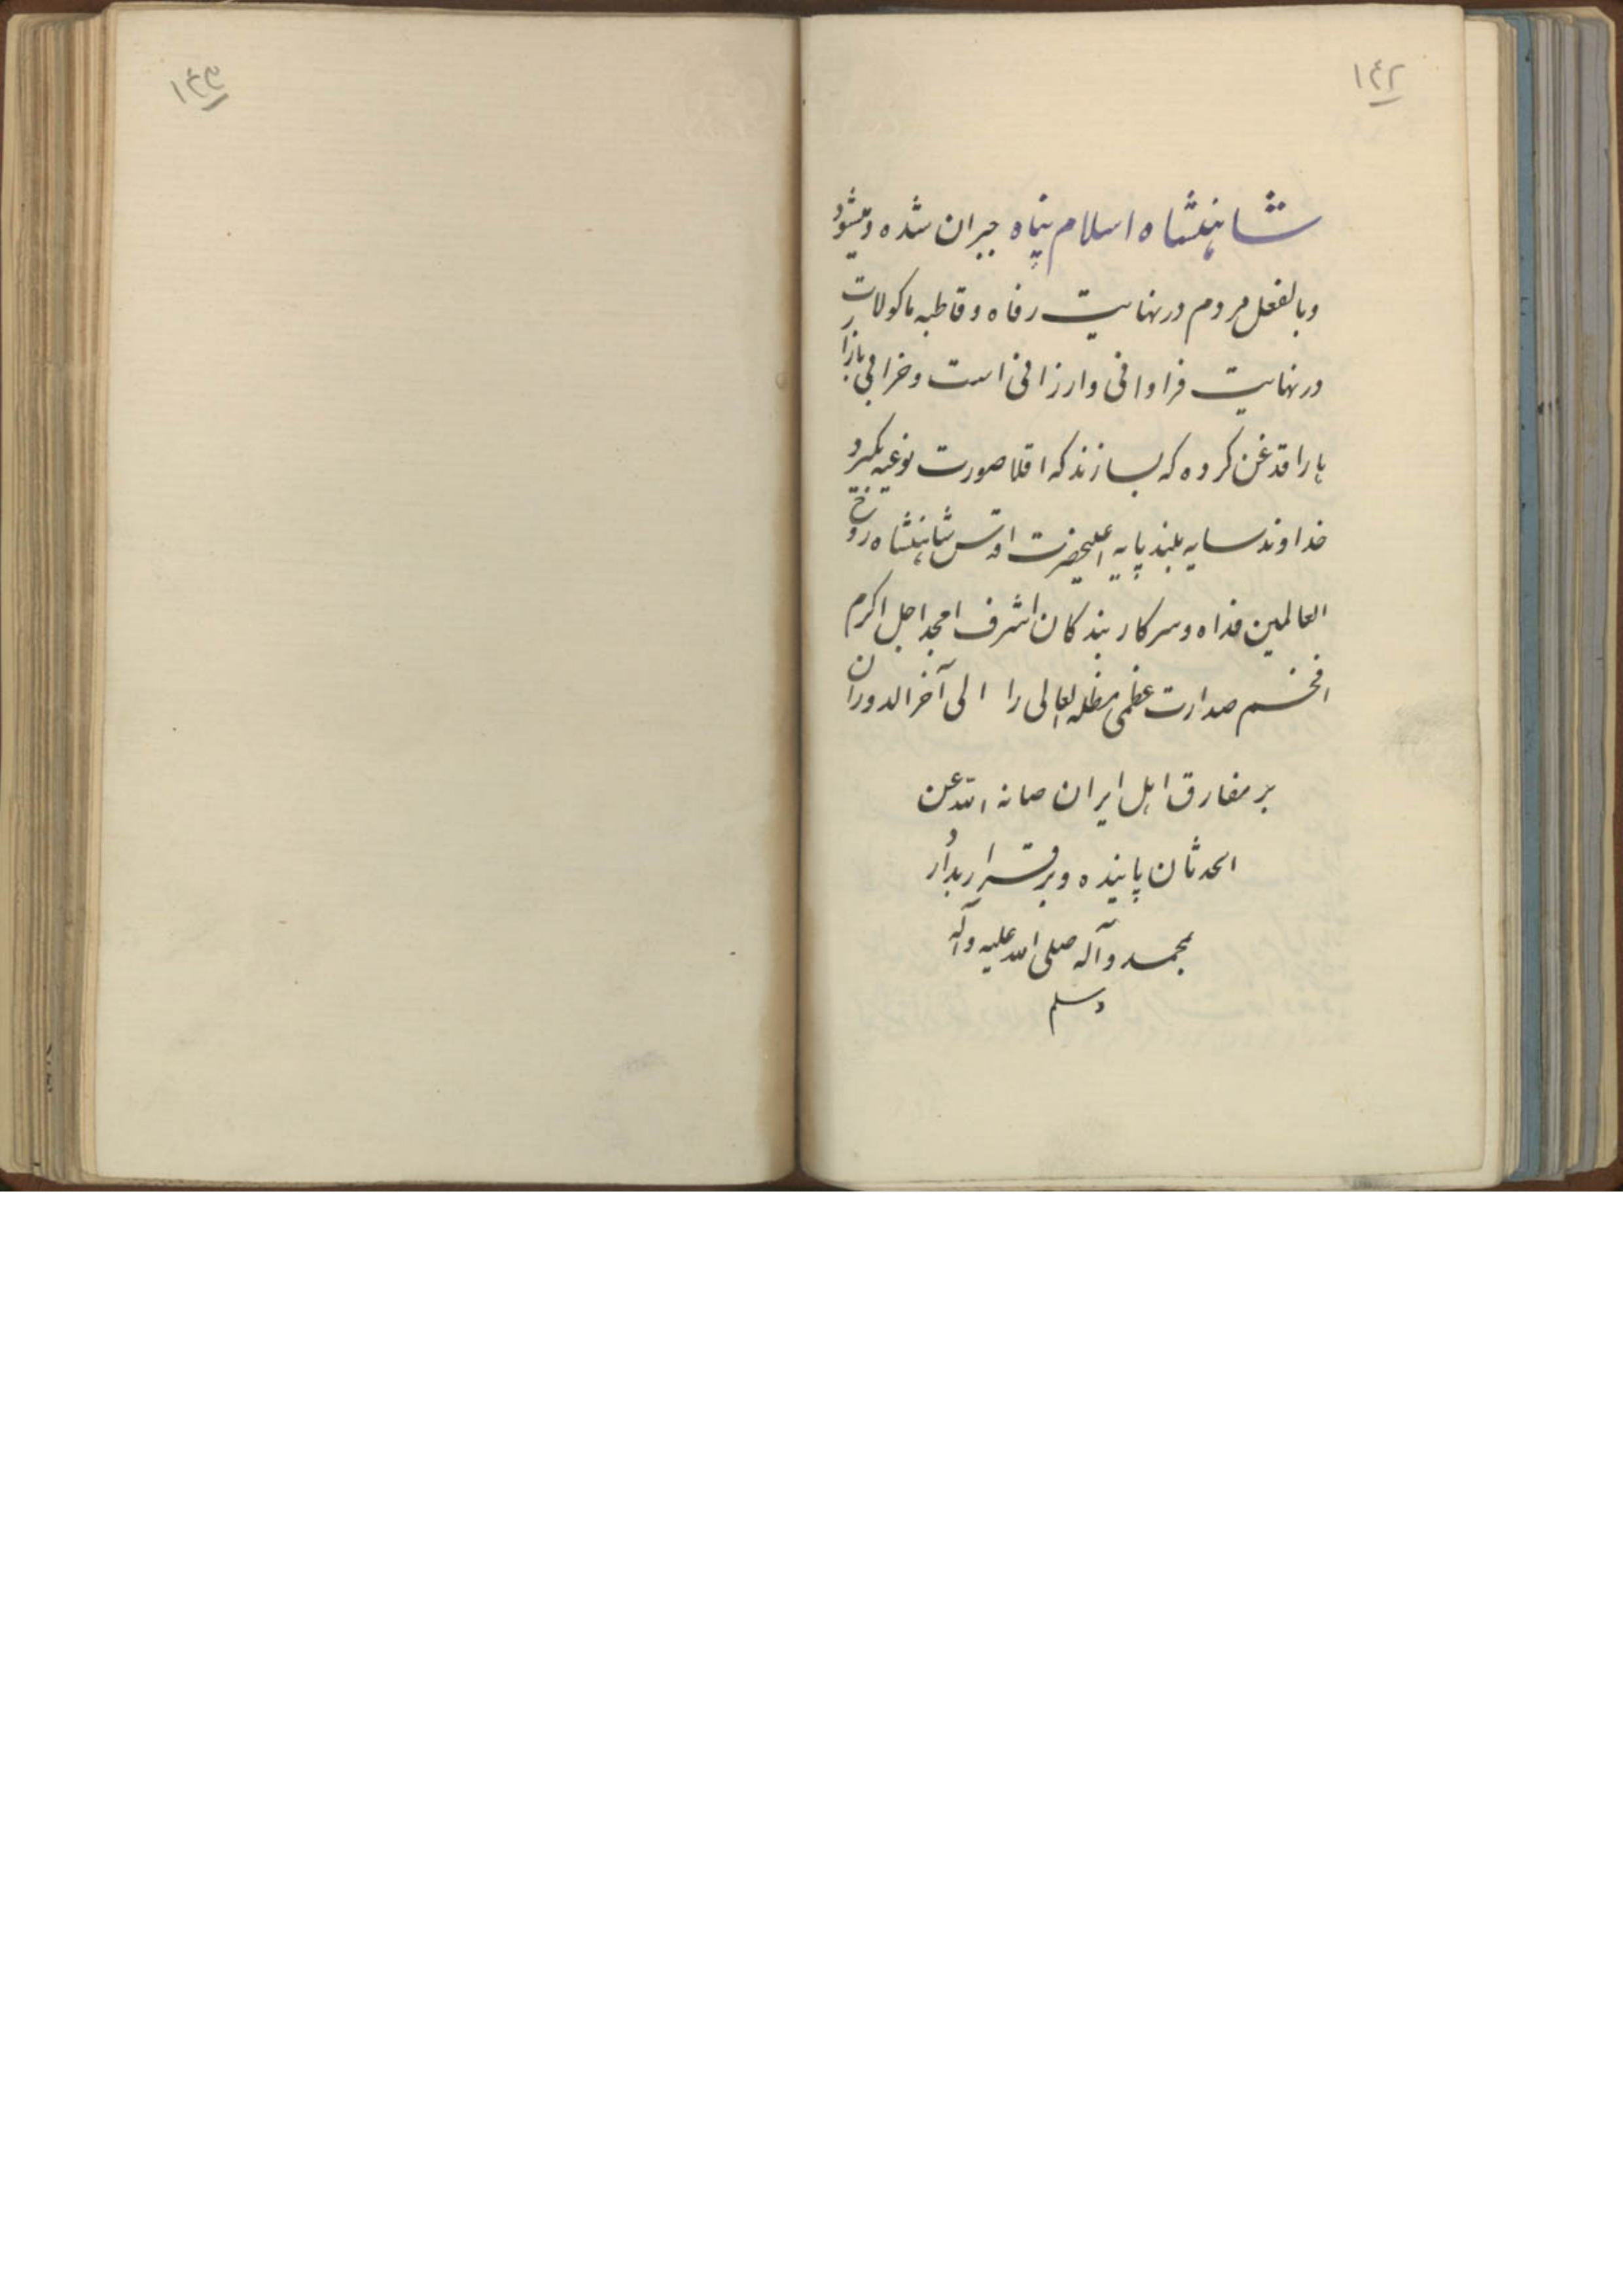 ۱۴۲
شاهنشاه اسلام پناه جبران شده و میشود
و بالفعل مردم در نهایت رفاه و قاطبه ماکولات
در نهایت فراوانی و ارزانی است و خرابی بازار
ها را قدغن کرده که بسازند که اقلا صورت نوعیه بگیرد
خداوند سایه بلند پایه اعلیحضرت اقدس شاهنشاه روح
العالمین فداه و سرکار بندگان اشرف امجد اجل اکرم
افخم صدارت عظمی مدظله العالی را الی آخر الدوران
بر مفارق اهل ایران صانه الله عن
الحدثان پاینده و برقرار بدارد
بمحمد و آله صلی الله علیه و آله
وسلم
۱۴۳